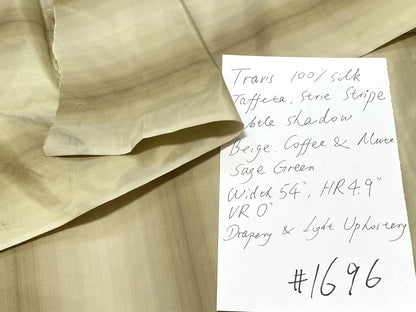 Travis 100% Silk
Taffeta, Strie Stripe
Subtle shadow
Beige, Coffee & Mute
Sage Green
Width 54", HR 4.9"
VR 0"
Drapery & Light Uphostery
#1696